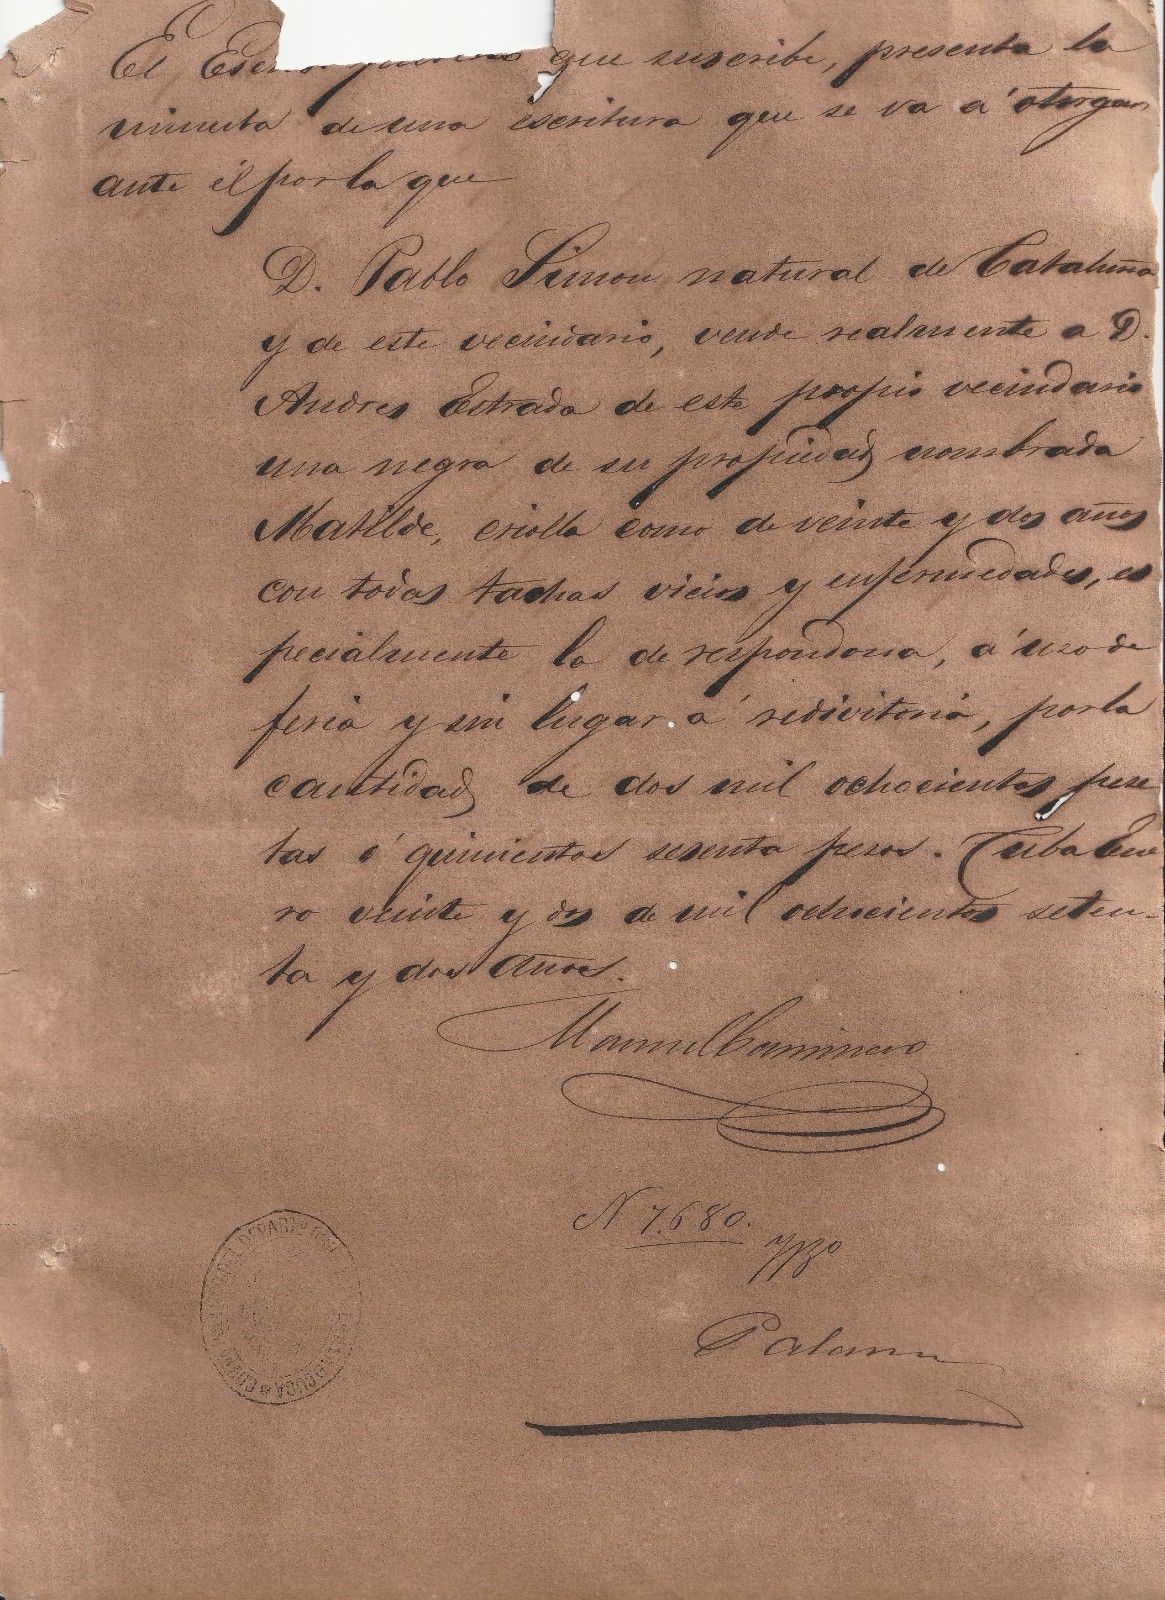 El Escribano público que suscribe, presenta la
minuta de una escritura que se va á otorgar
ante él por la que
D. Pablo Simon natural de Cataluña
y de este vecindario, vende realmente a D.
Andres Estrada de este propio vecindario
una negra de su propiedad nombrada
Matilde, criolla como de veinte y dos años
con todas tachas vicios y enfermedades, es
pecialmente la de respondona, á uso de
feria y sin lugar á redivitoria, por la
cantidad de dos mil ochocientas pese
tas ó quinientos sesenta pesos. Cuba Ene
ro veinte y dos de mil ochocientos seten-
ta y dos años.
Manuel Caminero
N 7.680.
Palom